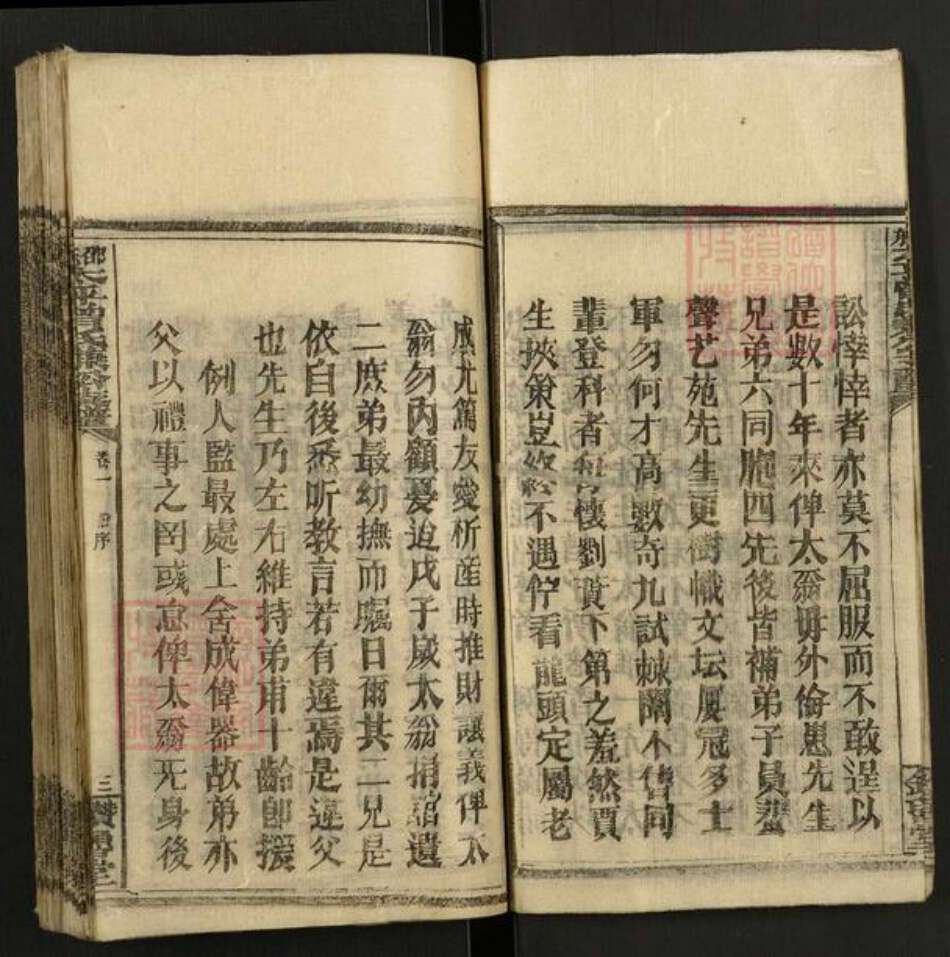 訟悻悻者亦莫不屈服而不敢逞以
是數十年來俾太翁毋外侮患先生
兄弟六同胞四先後皆補弟子員蜚
聲艺苑先生更樹幟文坛屡冠多士
軍勿何才高數奇九試棘闈不售同
輩登科者每懷劉蕡下第之羞然賈
生挾策豈終不遇佇看龍頭定屬老
成尤篤友愛析產時推財讓義俾太
翁勿內顧憂迨戊子歲太翁捐舘遺
二庶弟最幼撫而嘱曰爾其二兄是
依自後悉听教言若有違焉是違父
也先生乃左右維持弟甫十齡卽援
例人監最處上舍成偉器故弟亦
父以禮事之罔或怠俾太翁死身後
卷一
序
三